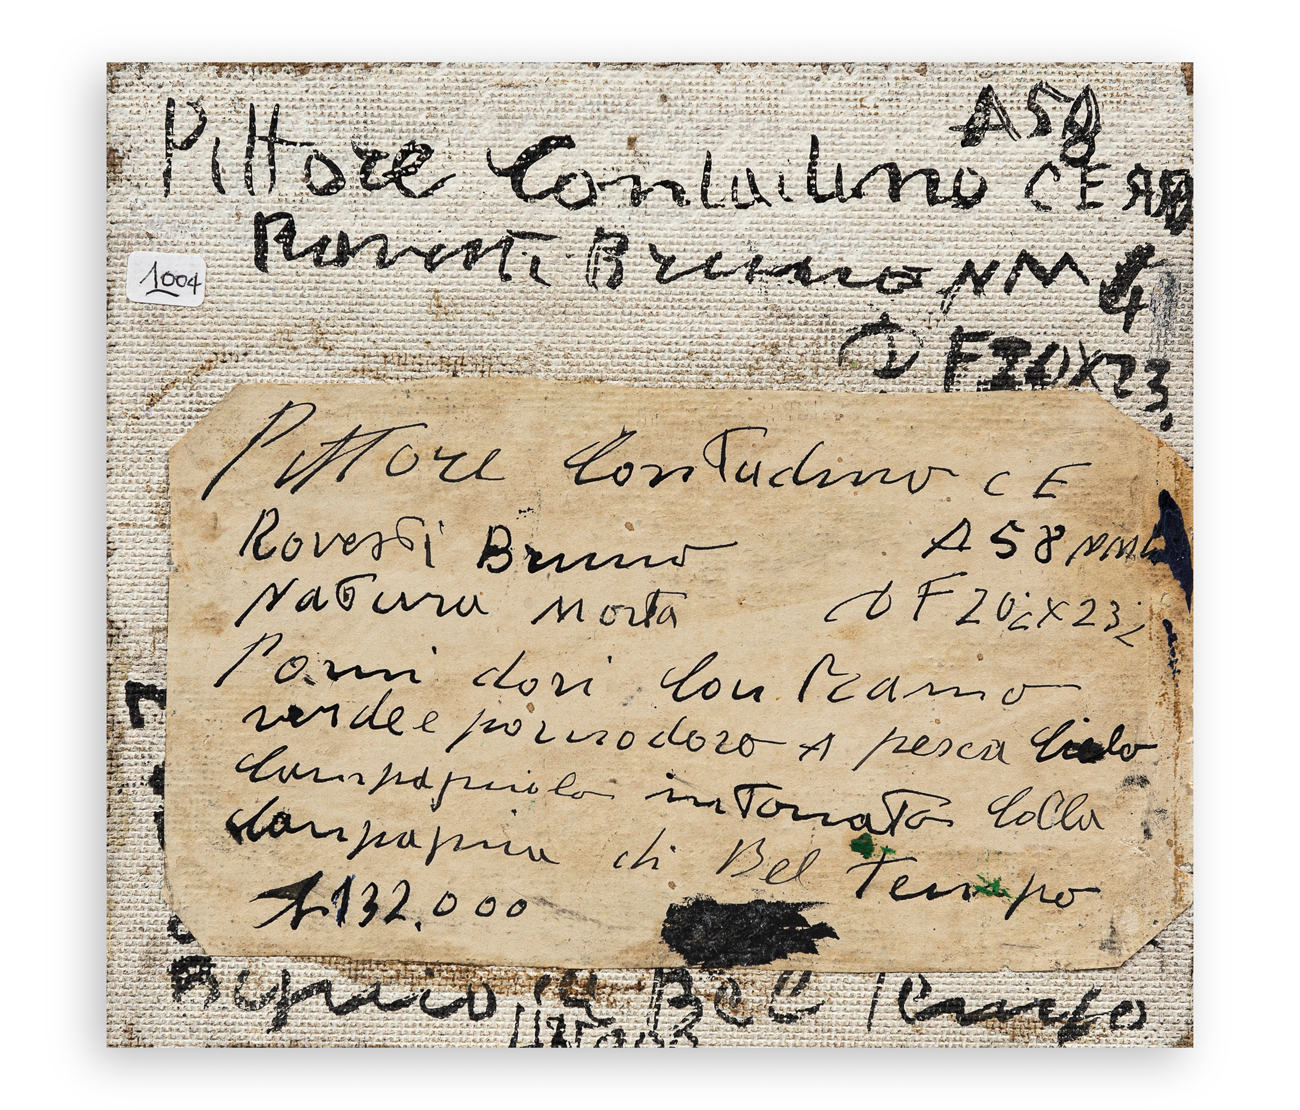 Pittore Contadino
A58
CE
Rovesti Bruno NM 4
F20X23
1004
Pittore Contadino CE
Rovesti Bruno A 58
Natura Morta F 20 X 23
Pomi dori Con Ramo
verde e pomodoro A pesca Cielo
Campagniolo intonato Colla
Campagnia di Bel Tempo
132.000
Bel Tempo